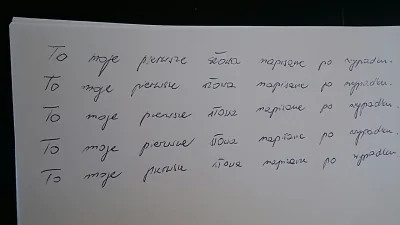 To moje pierwsze słowa napisane po wypadku.
To moje pierwsze słowa napisane po wypadku.
To moje pierwsze słowa napisane po wypadku.
To moje pierwsze słowa napisane po wypadku.
To moje pierwsze słowa napisane po wypadku.